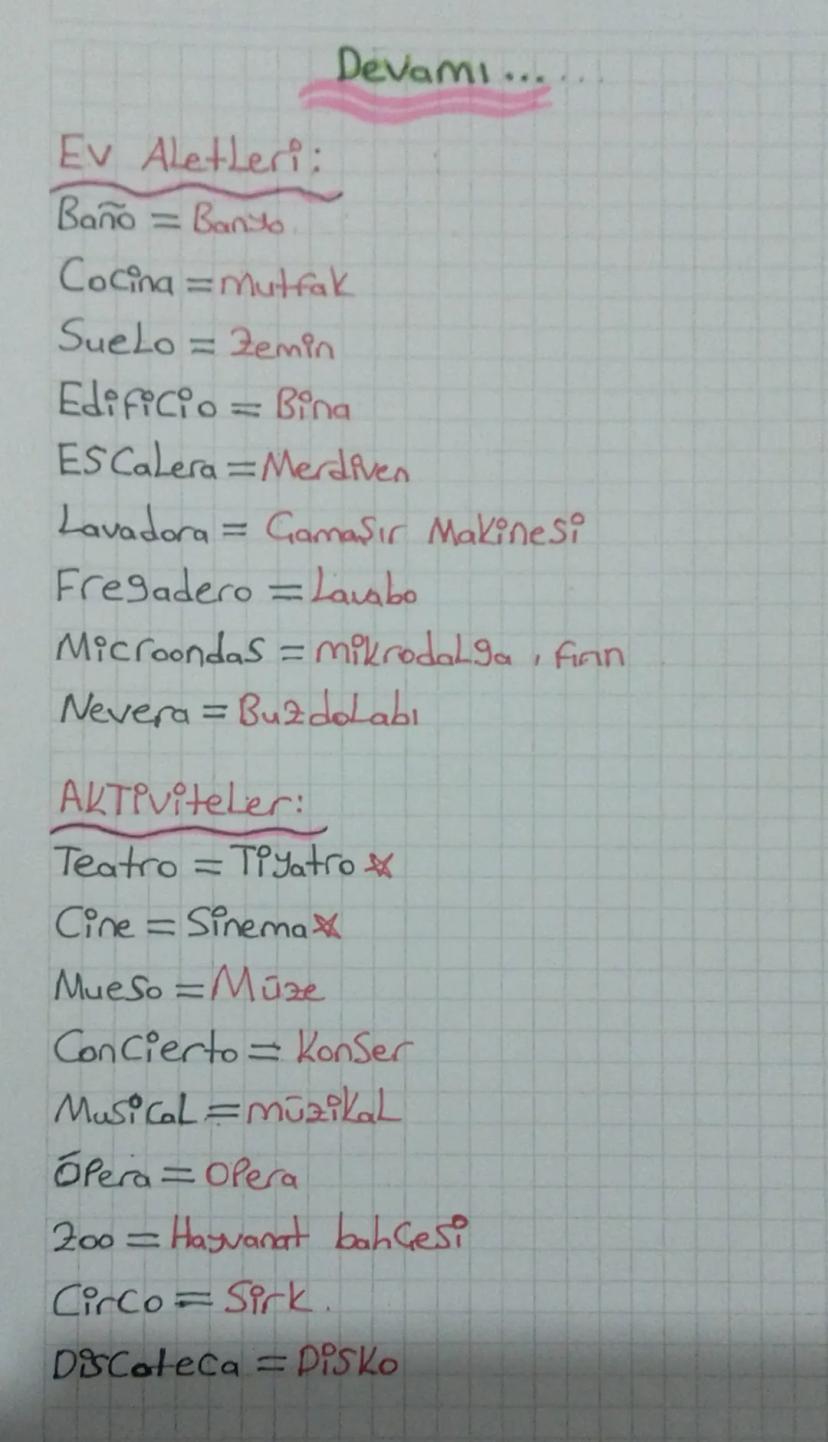 Devamı......
Ev Aletleri:
Baño = Banyo
Cocina = mutfak
Suelo = Zemin
Edificio = Bina
Escalera = Merdiven
Lavadora = Çamaşır Makinesi
Fregadero = Lavabo
Microondas = mikrodalga, fırın
Nevera = Buzdolabı
Aktiviteler:
Teatro = Tiyatro ☆
Cine = Sinema ☆
Mueso = Müze
Concierto = Konser
Musical = müzikal
Ópera = Opera
Zoo = Hayvanat bahçesi
Circo = Sirk.
Discoteca = Disko